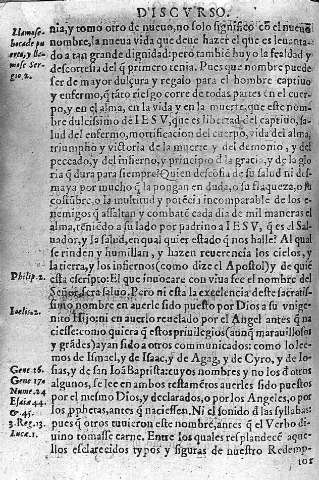 DISCVRSO.
Llamose
mose Ser
gio 2.
nia, y tomo otro de nueuo, no solo significó cõ el nueuo
nombre, la nueua vida que deue hazer el que es leuanta-
do a tan grande dignidad pero tambiẽ huyo la fealdad y
descortesia del q primero tenia. Pues que nombre puede
ser de mayor dulçura y regalo para el hombre captiuo
y enfermo, q tãto riesgo corre de todas partes en el cuer-
po, y en el alma, en la vida y en la muerte, que este nom-
bre dulcissimo de IESV, que es libertad del captiuo, sa-
lud del enfermo, mortificacion del cuerpo, vida del alma,
triumpho y victoria de la muerte y del demonio, y del
peccado, y del infierno, y principio d la gracia, y de la glo-
ria q dura para siempre? Quien descofia de su salud ni des-
maya por mucho q la pongan en duda, o su flaqueza, o su
costũbre, o la multitud y potẽcia incomparable de los e-
nemigos q assaltan y combatẽ cada dia de mil maneras el
alma, teniẽdo a su lado por padrino a IESV, que es el Sal-
uador, y la salud, en qual quier estado q nos halle? Al qual
se rinden y humillan, y hazen reuerencia los cielos, y
la tierra, y los infiernos (como dize el Apostol) y de quiẽ
esta escripto: El que inuocare con viua fee el nombre del
Señor, sera saluo. Pero ni esta la excelencia deste sacratis-
simo nombre en auerle sido puesto por Dios a su vnige-
nito Hijo: ni en auerlo reuelado por el Angel antes q na-
ciesse: como quiera q estos priuilegios (aunq marauillosos
y grãdes) ayan sido a otros communicados: como lo lee-
mos de Ismael, y de Isaac, y de Agag, y de Cyro, y de Io-
sias, y de san Ioã Baptista: cuyos nombres y no los d otros
algunos, se lee en ambos testamẽtos auerles sido puestos
por el mesmo Dios, y declarados, o por los Angeles, o por
los pphetas, antes q naciessen. Ni el sonido d las syllabas:
pues q otros tuuieron este nombre, antes q el Verbo di-
uino tomasse carne. Entre los quales resplandece aque-
llos esclarecidos typos y figuras de nuestro Redemp-
tor
Philip. 2.
Ioelis. 2.
Gene 16.
Gene 17.
Nume. 24
Esaiæ 44.
& 45.
3. Reg. 13.
Lucæ. 1.